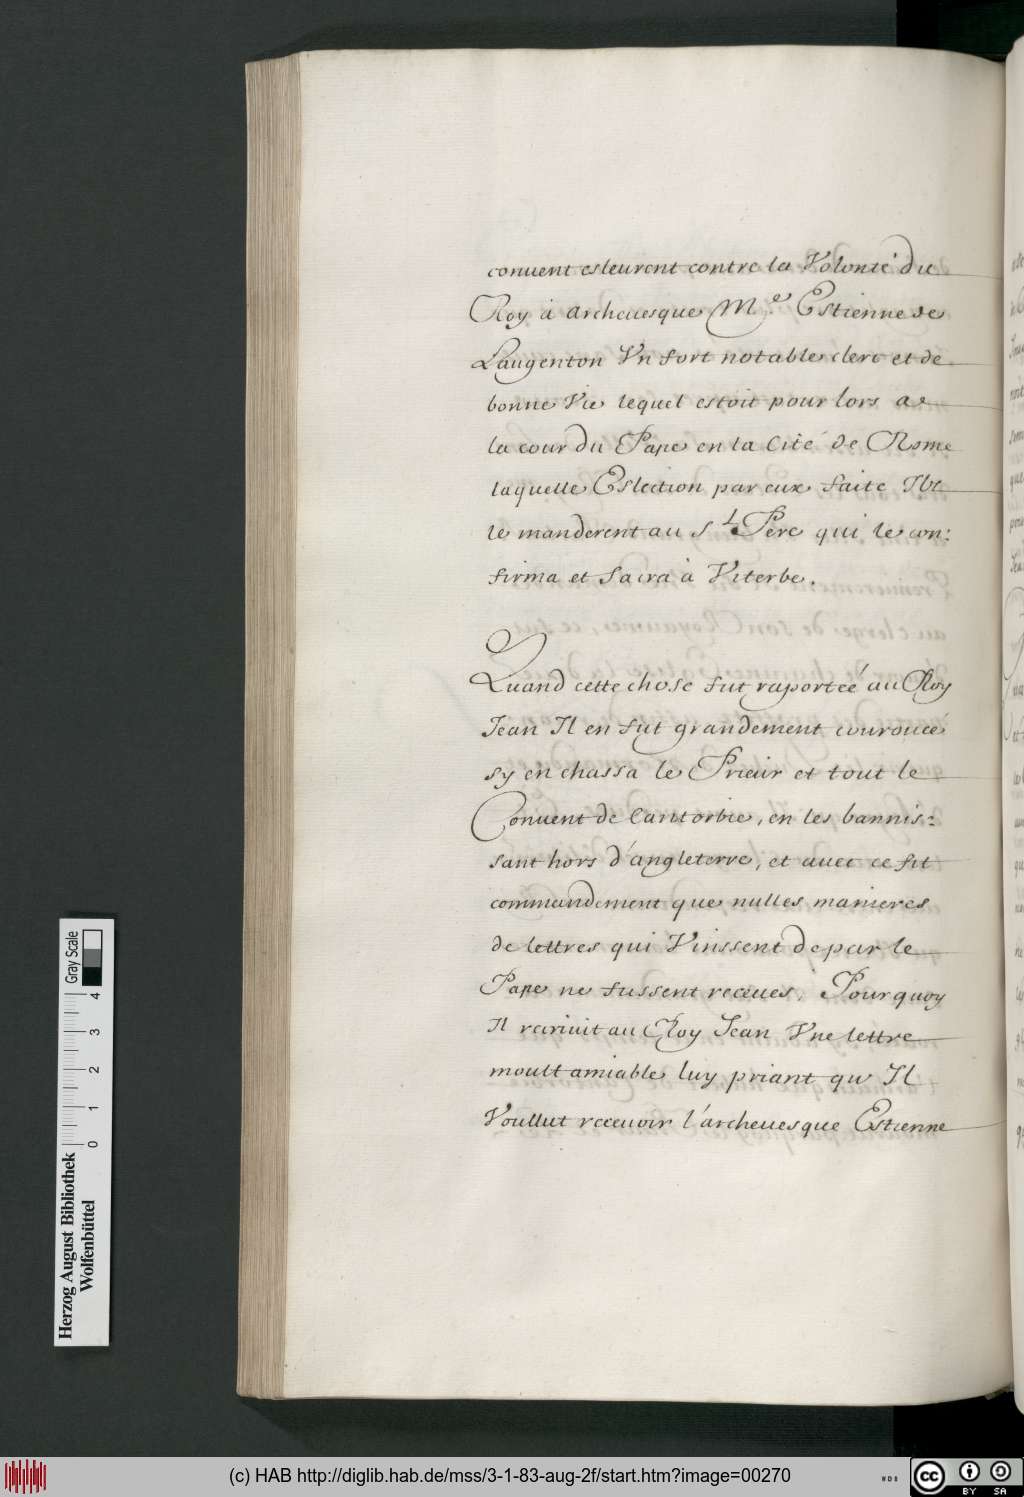 conuent esleurent contre la Volonté du
Roy à archeuesque M.e Estienne de
Laugenton Vn fort notable clerc et de
bonne Vie lequel estoit pour lors a
la cour du Pape en la Cité de Rome
laquelle Eslection par eux faite Ils
le manderent au S.t Pere qui le con:
firma et sacra à Viterbe.
Quand cette chose fut raportée au Roy
Jean Il en fut grandement couroucé
sy en chassa le Prieur et tout le
Conuent de Cantorbie, en les bannis:
sant hors d'angleterre, et auec ce fit
commandement que nulles manieres
de lettres qui Vinssent de par le
Pape ne fussent receues, Pourquoy
Il rcriuit au Roy Jean Vne lettre
moult amiable luy priant qu Il
Voullut receuoir l'archeuesque Estienne
Herzog August Bibliothek
Wolfenbüttel
0 1 2 3 4
Gray Scale
(c) HAB http://diglib.hab.de/mss/3-1-83-aug-2f/start.htm?image=00270
WDB
cc BY SA